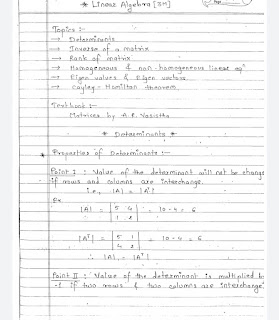 * Linear Algebra [3M]
Topics :-
→ Determinants
→ Inverse of a matrix
→ Rank of matrix
→ Homogeneous & non-homogeneous linear eqⁿ
→ Eigen values & Eigen vectors.
→ Cayley-Hamilton theorem.
Textbook :-
Matrices by A.R. Vasistha
* Determinants *
* Properties of Determinants :-
Point I : Value of the determinant will not be change
if rows and columns are interchange.
i.e, |A| = |A'|
Ex
|A| = | 5 4 | = 10 - 4 = 6
| 1 2 |
|A'| = | 5 1 | = 10 - 4 = 6
| 4 2 |
∴ |A| = |A'|
Point II : Value of the determinant is multiplied by
-1 if two rows & two columns are interchange